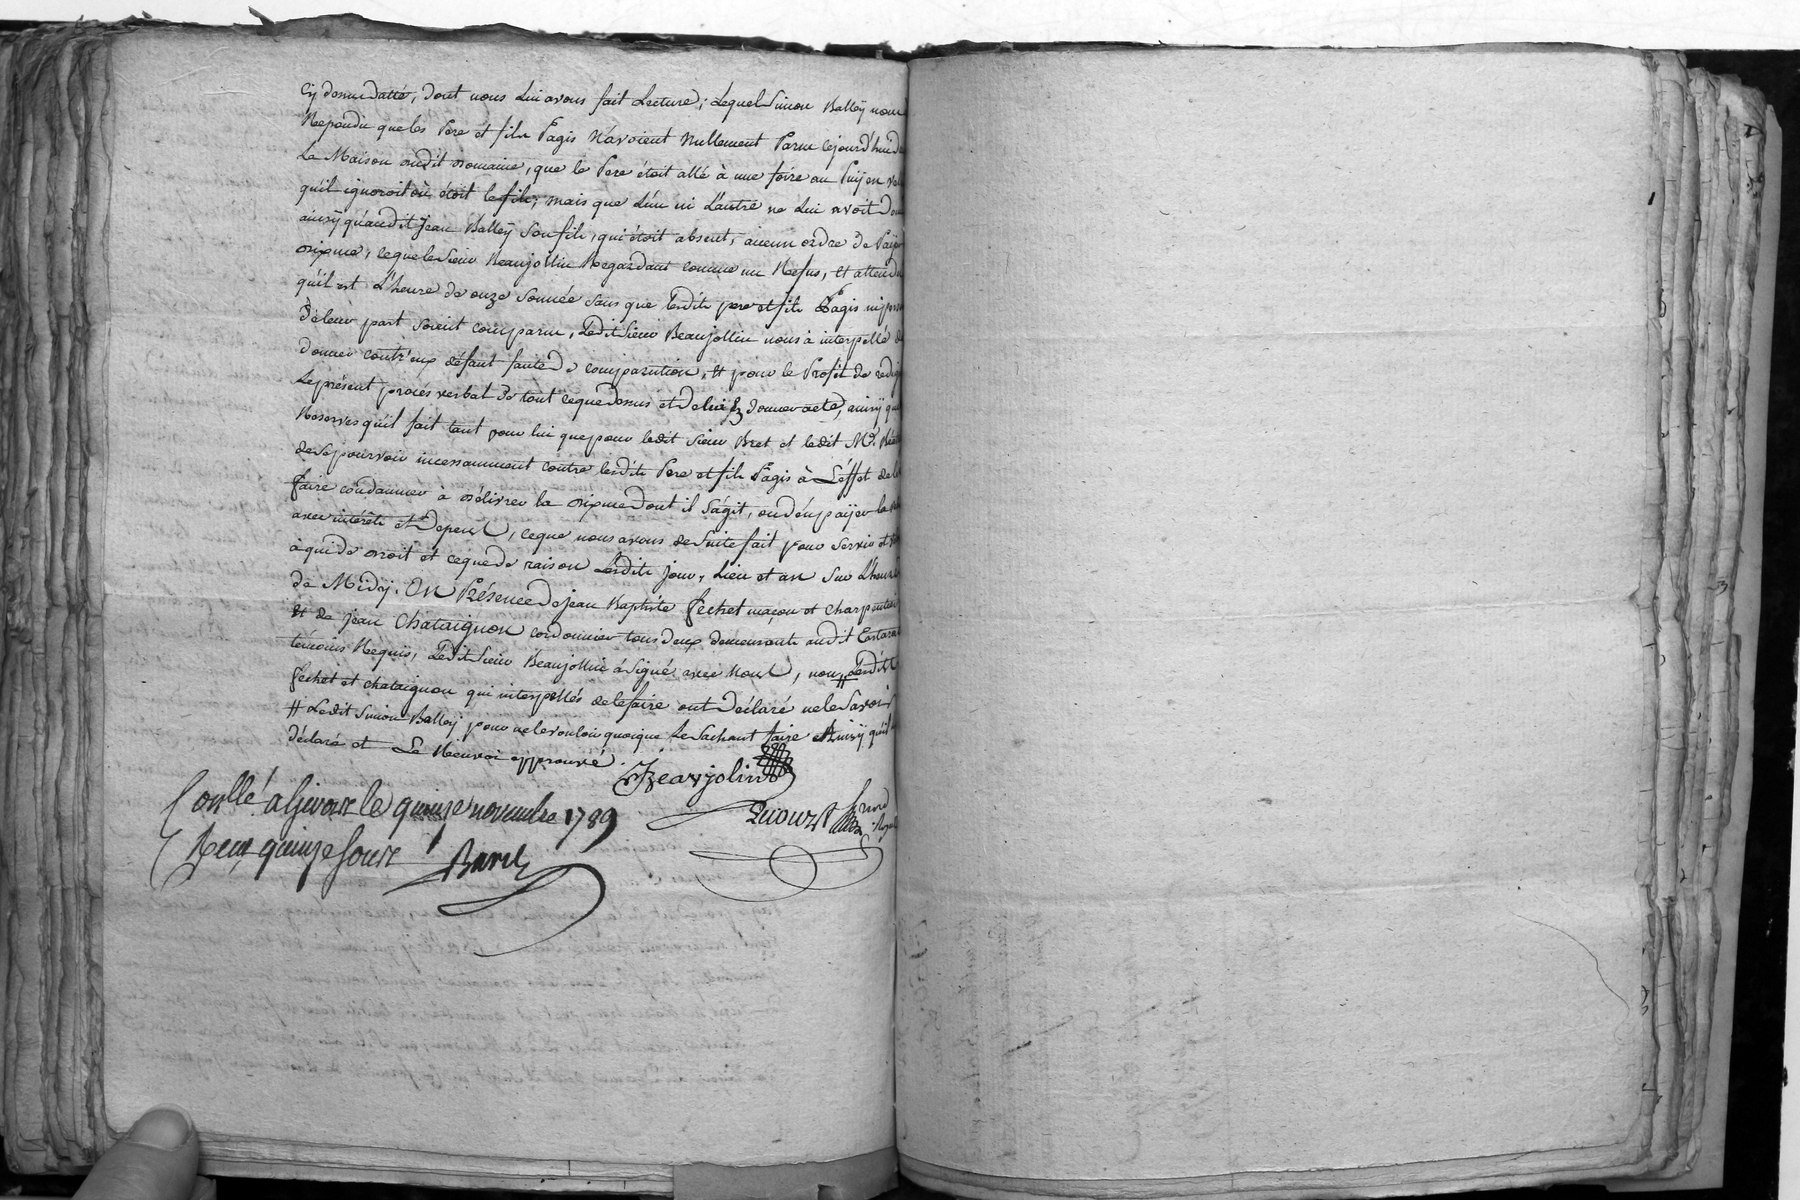 Cy dessus datté, dont nous Lui avons fait Lecture; Lequel Simon Balley nous
Repondu que les Pere et fils Pagis N'avoient Nullement Paru cejourd'hui d
La Maison audit domaine, que le Pere étoit allé à une foire au Puy en
qu'il ignoroit où étoit le fils; mais que L'un ni L'autre ne Lui avoit
ainsy qu'audit Jean Balley Son fils, qui étoit absent, aucun ordre de Payer
dixme, ceque le Sieur Beaujollin Regardant comme un Refus, Et attendu
qu'il est L'heure de onze Sonnée Sans que Lesdits pere et fils Pagis ni
de leur part Soient comparus, Ledit Sieur Beaujollin nous à interpellé de
donner contr'eux défaut faute de comparution, Et pour le Profit de
Le présent procès verbal de tout ceque dessus et de lui donner acte, ainsy que
Reserves qu'il fait tant pour lui que pour ledit Sieur Bret et ledit Mr.
de Sépourvoir incessamment contre lesdits Pere et fils Pagis à L'éffet de
faire condamner à délivrer la dixme dont il S'ágit, ou d'en païer la
avec intérêts et Depens, ceque nous avons de Suite fait pour Servir et
à qui de droit et ceque de raison Lesdits jour, Lieu et an Sur L'heure
de Midy. En Présence de Jean Baptiste fechet maçon et charpentier
Et de Jean Chataignon cordonnier tous deux demeurants audit
témoins Requis, Ledit Sieur Beaujollin à Signé avec Nous, non Lesdits
fechet et chataignon qui interpellés de le faire ont Déclaré ne le Savoir
# Ledit Simon Balley pour ne le vouloir quoique Le Sachant faire Ainsy qu'il
déclaré et Le Renvoi approuvé.
Beaujolin
Conllé a Givors le quinze novembre 1789
Recu quinze Sous